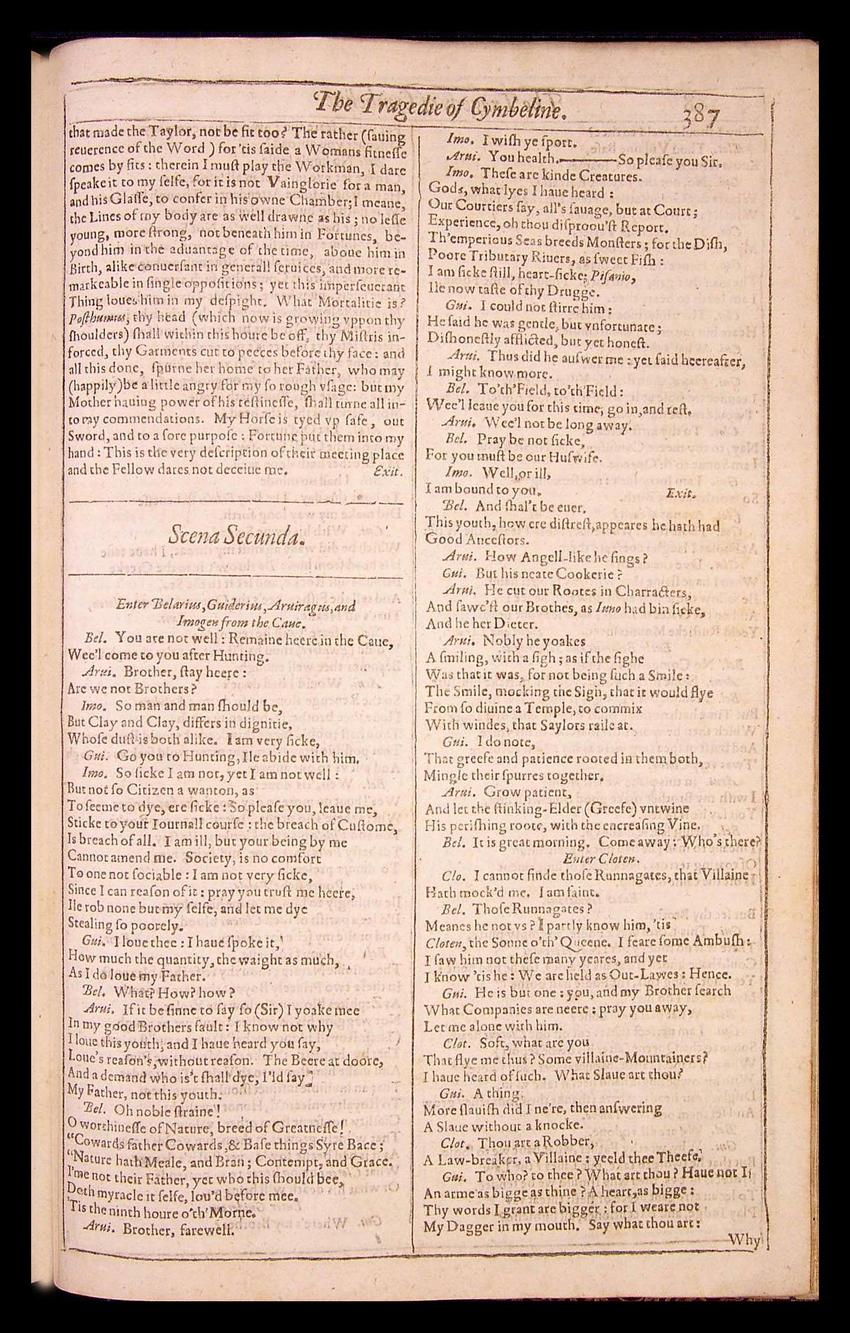 The Tragedie of Cymbeline.
387
that made the Taylor, not be fit too? The rather (ſauing
reuerence of the Word) for 'tis ſaide a Womans fitneſſe
comes by fits: therein I muſt play the Workman, I dare
ſpeake it to my ſelfe, for it is not Vainglorie for a man,
and his Glaſſe, to confer in his owne Chamber; I meane,
the Lines of my body are as well drawne as his; no leſſe
young, more ſtrong, not beneath him in Fortunes, be-
yond him in the aduantage of the time, aboue him in
Birth, alike conuerſant in generall ſeruices, and more re-
markeable in ſingle oppoſitions; yet this imperſeuerant
Thing loues him in my deſpight. What Mortalitie is?
Poſthumus, thy head (which now is growing vppon thy
ſhoulders) ſhall within this houre be off, thy Miſtris in-
forced, thy Garments cut to peeces before thy face: and
all this done, ſpurne her home to her Father, who may
(happily) be a little angry for my ſo rough vſage: but my
Mother hauing power of his teſtineſſe, ſhall turne all in-
to my commendations. My Horſe is tyed vp ſafe, out
Sword, and to a ſore purpoſe: Fortune put them into my
hand: This is the very deſcription of their meeting place
and the Fellow dares not deceiue me. Exit.
Scena Secunda.
Enter Belarius, Guiderius, Aruiragus, and
Imogen from the Caue.
Bel. You are not well: Remaine heere in the Caue,
Wee'l come to you after Hunting.
Arui. Brother, ſtay heere:
Are we not Brothers?
Imo. So man and man ſhould be,
But Clay and Clay, differs in dignitie,
Whoſe duſt is both alike. I am very ſicke,
Gui. Go you to Hunting, Ile abide with him.
Imo. So ſicke I am not, yet I am not well:
But not ſo Citizen a wanton, as
To ſeeme to dye, ere ſicke: So pleaſe you, leaue me,
Sticke to your Iournall courſe: the breach of Cuſtome,
Is breach of all. I am ill, but your being by me
Cannot amend me. Society, is no comfort
To one not ſociable: I am not very ſicke,
Since I can reaſon of it: pray you truſt me heere,
Ile rob none but my ſelfe, and let me dye
Stealing ſo poorely.
Gui. I loue thee: I haue ſpoke it,
How much the quantity, the waight as much,
As I do loue my Father.
Bel. What? How? how?
Arui. If it be ſinne to ſay ſo (Sir) I yoake mee
In my good Brothers fault: I know not why
I loue this youth, and I haue heard you ſay,
Loue's reaſon's, without reaſon. The Beere at doore,
And a demand who is't ſhall dye, I'ld ſay
My Father, not this youth.
Bel. Oh noble ſtraine!
O worthineſſe of Nature, breed of Greatneſſe!
"Cowards father Cowards, & Baſe things Syre Bace;
"Nature hath Meale, and Bran; Contempt, and Grace.
I'me not their Father, yet who this ſhould bee,
Doth myracle it ſelfe, lou'd before mee.
'Tis the ninth houre o'th'Morne.
Arui. Brother, farewell.
Imo. I wiſh ye ſport.
Arui. You health.———So pleaſe you Sir.
Imo. Theſe are kinde Creatures.
Gods, what lyes I haue heard:
Our Courtiers ſay, all's ſauage, but at Court;
Experience, oh thou diſproou'ſt Report.
Th'emperious Seas breeds Monſters; for the Diſh,
Poore Tributary Riuers, as ſweet Fiſh:
I am ſicke ſtill, heart-ſicke; Piſanio,
Ile now taſte of thy Drugge.
Gui. I could not ſtirre him:
He ſaid he was gentle, but vnfortunate;
Diſhoneſtly afflicted, but yet honeſt.
Arui. Thus did he anſwer me: yet ſaid heereafter,
I might know more.
Bel. To'th'Field, to'th'Field:
Wee'l leaue you for this time, go in, and reſt.
Arui. Wee'l not be long away.
Bel. Pray be not ſicke,
For you muſt be our Huſwife.
Imo. Well, or ill,
I am bound to you. Exit.
Bel. And ſhal't be euer.
This youth, how ere diſtreſt, appeares he hath had
Good Anceſtors.
Arui. How Angell-like he ſings?
Gui. But his neate Cookerie?
Arui. He cut our Rootes in Charracters,
And ſawc'ſt our Brothes, as Iuno had bin ſicke,
And he her Dieter.
Arui. Nobly he yoakes
A ſmiling, with a ſigh; as if the ſighe
Was that it was, for not being ſuch a Smile:
The Smile, mocking the Sigh, that it would flye
From ſo diuine a Temple, to commix
With windes, that Saylors raile at.
Gui. I do note,
That greefe and patience rooted in them both,
Mingle their ſpurres together.
Arui. Grow patient,
And let the ſtinking-Elder (Greefe) vntwine
His periſhing roote, with the encreaſing Vine.
Bel. It is great morning. Come away: Who's there?
Enter Cloten.
Clo. I cannot finde thoſe Runnagates, that Villaine
Hath mock'd me. I am faint.
Bel. Thoſe Runnagates?
Meanes he not vs? I partly know him, 'tis
Cloten, the Sonne o'th'Queene. I feare ſome Ambuſh:
I ſaw him not theſe many yeares, and yet
I know 'tis he: We are held as Out-Lawes: Hence.
Gui. He is but one: you, and my Brother ſearch
What Companies are neere: pray you away,
Let me alone with him.
Clot. Soft, what are you
That flye me thus? Some villaine-Mountainers?
I haue heard of ſuch. What Slaue art thou?
Gui. A thing
More ſlauiſh did I ne're, then anſwering
A Slaue without a knocke.
Clot. Thou art a Robber,
A Law-breaker, a Villaine: yeeld thee Theefe.
Gui. To who? to thee? What art thou? Haue not I
An arme as bigge as thine? A heart, as bigge:
Thy words I grant are bigger: for I weare not
My Dagger in my mouth. Say what thou art:
Why